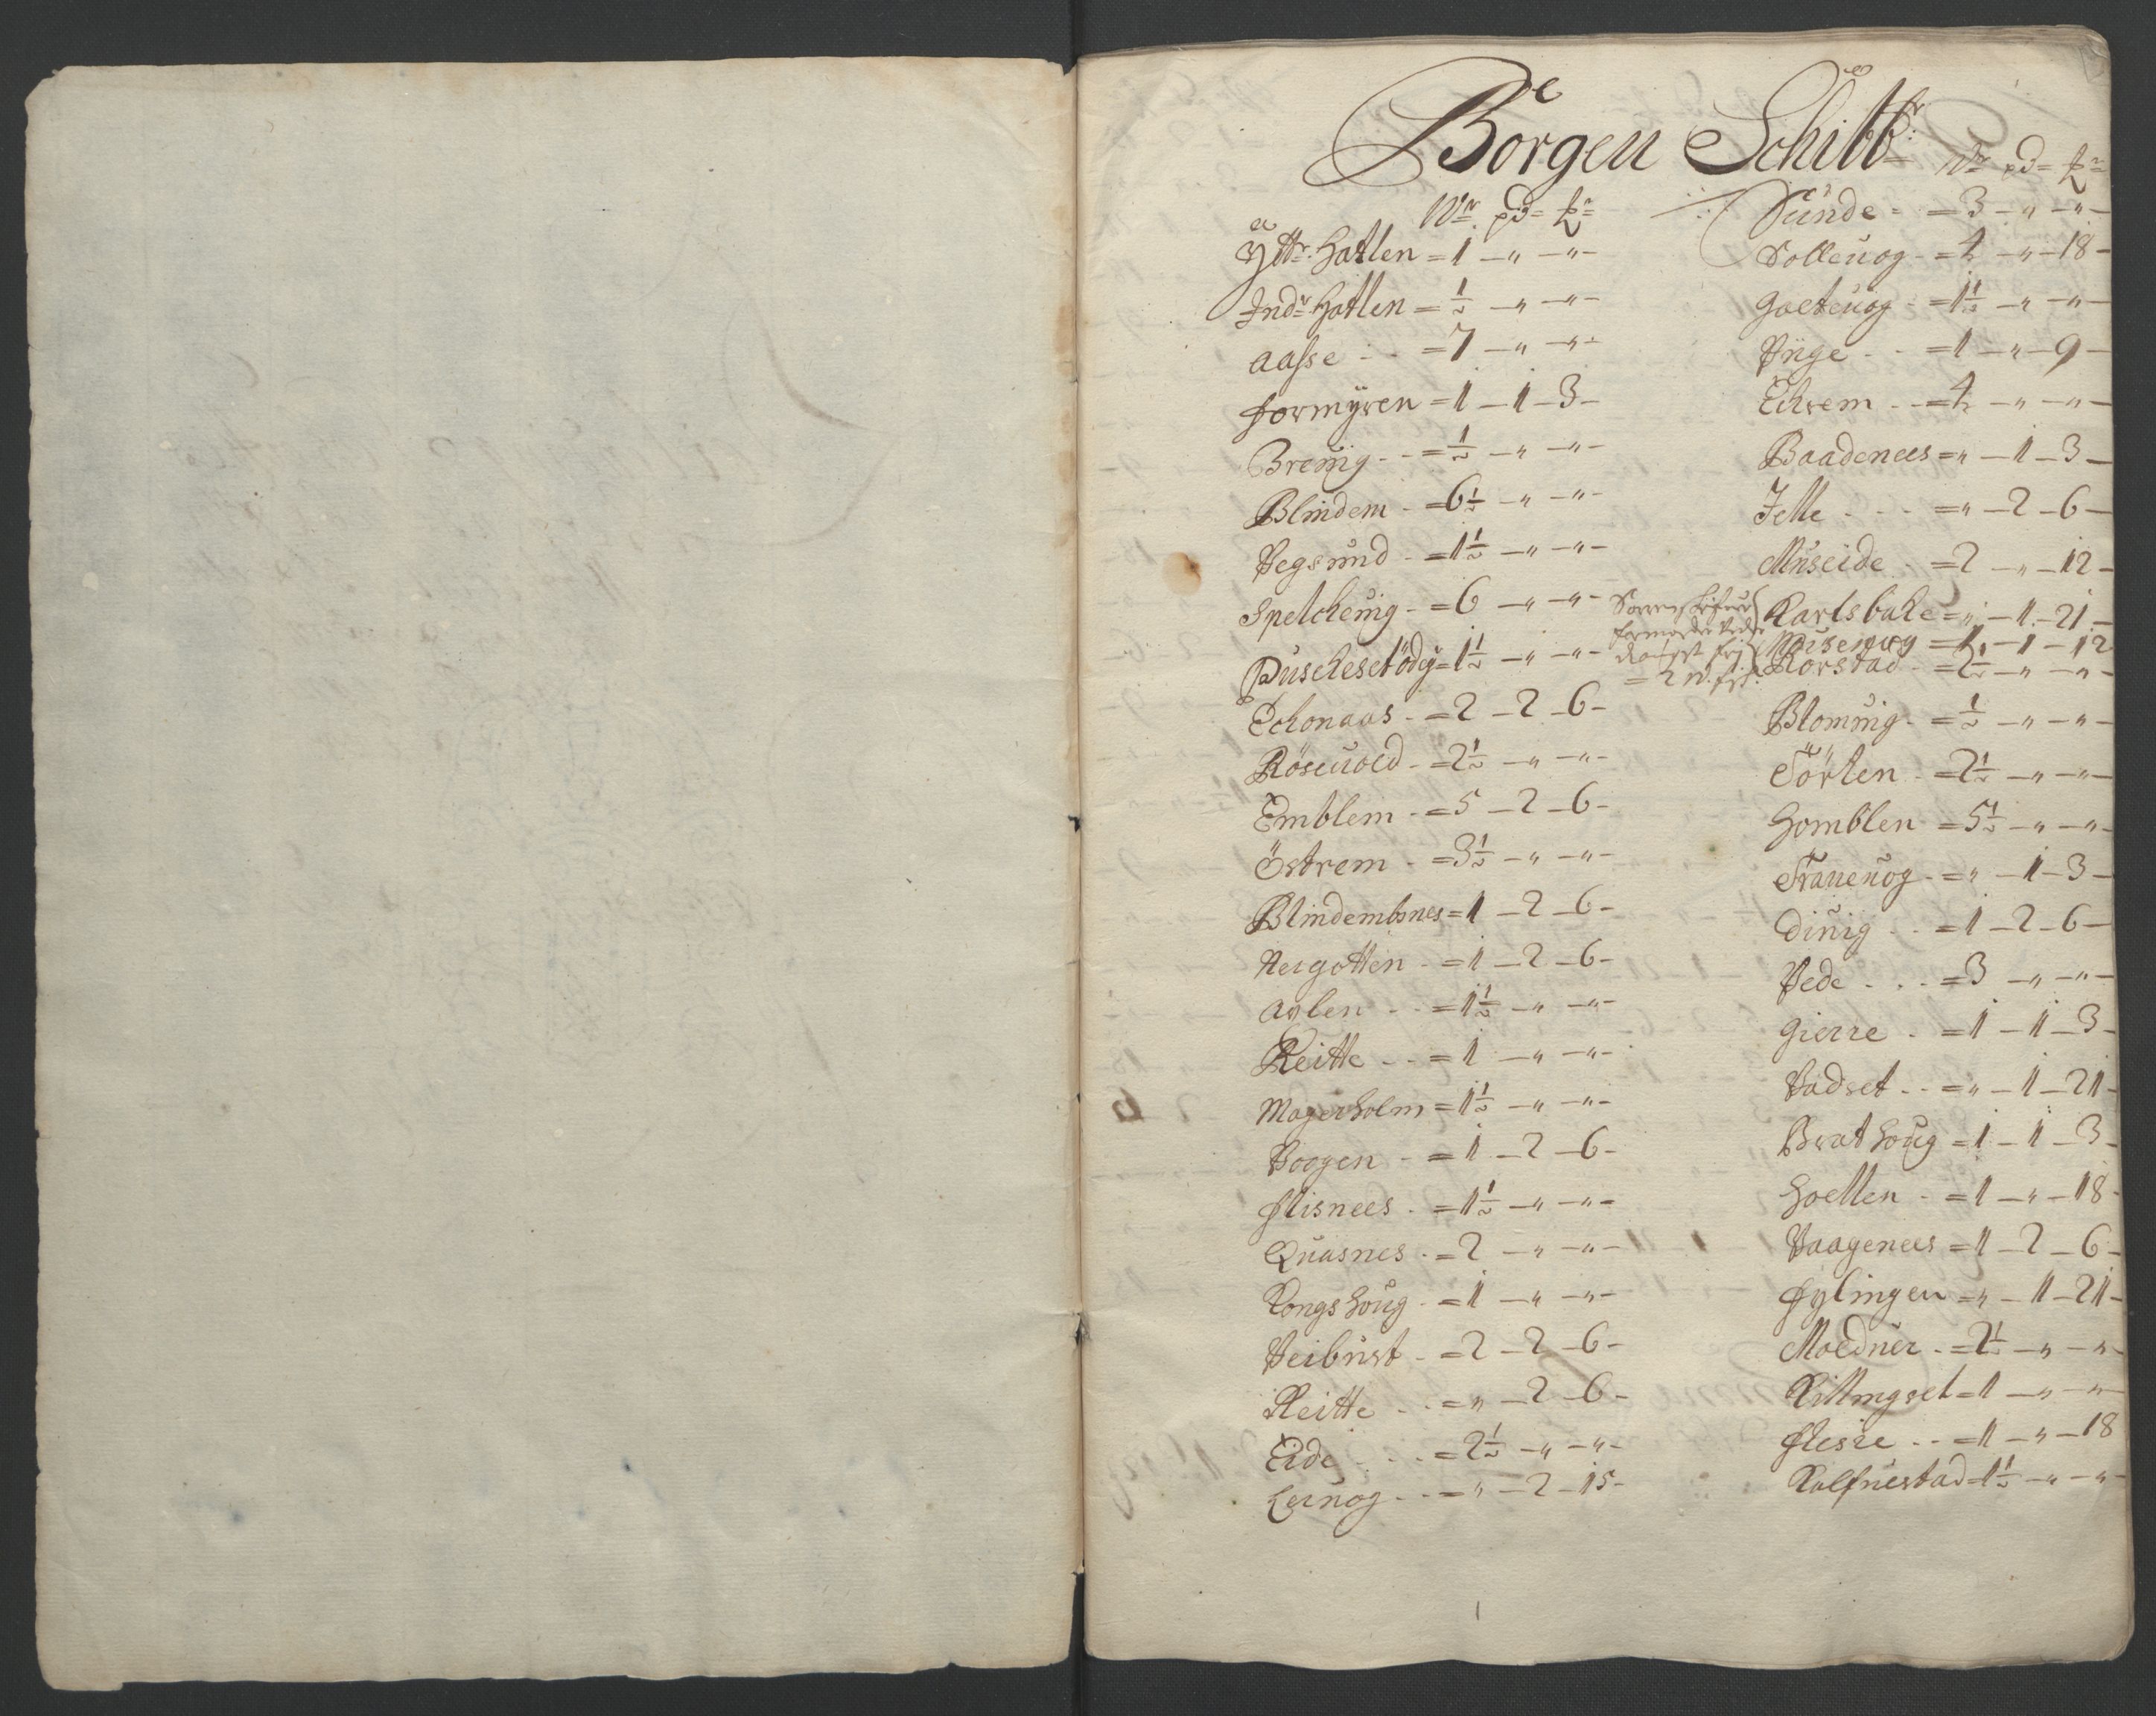 Borgen Schibbr:
Wr pd= =
Yttr: Hatlen = 1 — " — " —
Indr Hatlen = ½ — " — " —
Aasse - - = 7 — " — " —
formyren = 1 — 1 — 3 —
Breuig - - = ½ — " — " —
Blindem - = 6½ — " — " —
Vegsund - = 1½ — " — " —
Spelcheuig - = 6 — " — " —
= 1½ — " — " —
Echonaas - = 2 — 2 — 6 —
Röseuold - = 2½ — " — " —
Emblem - = 5 — 2 — 6 —
Östrem - = 3½ — " — " —
Blindembsnes = 1 — 2 — 6 —
Uergotten - = 1 — 2 — 6 —
- - = 1½ — " — " —
Reitte - - = 1 — " — " —
Magerholm = 1½ — " — " —
Vaagen - = 1 — 2 — 6 —
flisnees - = 1½ — " — " —
Quasnes - = 2 — " — " —
Kongshoug - = 1 — " — " —
Veibust - = 2 — 2 — 6 —
Reitte - - = " — 2 — 6 —
Eide - - - = 2½ — " — " —
Leruog - - = " — 2 — 15 —
Wr pd= =
Sunde - - = 3 — " — " —
Solleuog - = 4 — " — 18 —
Gaeteuog - = 1½ — " — " —
Ynge - - = 1 — " — 9 —
Echrem - - = 4 — " — " —
Baadenees = " — 1 — 3 —
Jelle - - - = " — 2 — 6 —
Museide - = 2 — " — 12 —
Karlsbake = " — 1 — 21 —
= 1 — 1 — 12
Rorstad - = 2½ — " — " —
Blomuig - = ½ — " — " —
Törlen - = 2½ — " — " —
Homblen = 5½ — " — " —
Traneuog - = " — 1 — 3 —
Diuig - - = 1 — 2 — 6 —
Vede - - - = 3 — " — " —
Gierre - = 1 — 1 — 3 —
Vadset - - = " — 1 — 21 —
Brathoug = 1 — 1 — 3 —
Hoellen - = 1 — " — 18 —
Vaagenees = 1 — 2 — 6 —
fylingen = " — 1 — 21 —
Molduer - = 2½ — " — " —
Rittingset = 1 — " — " —
flesre - - = 1 — " — 18
Rolfuestad = 1½ — " — " —